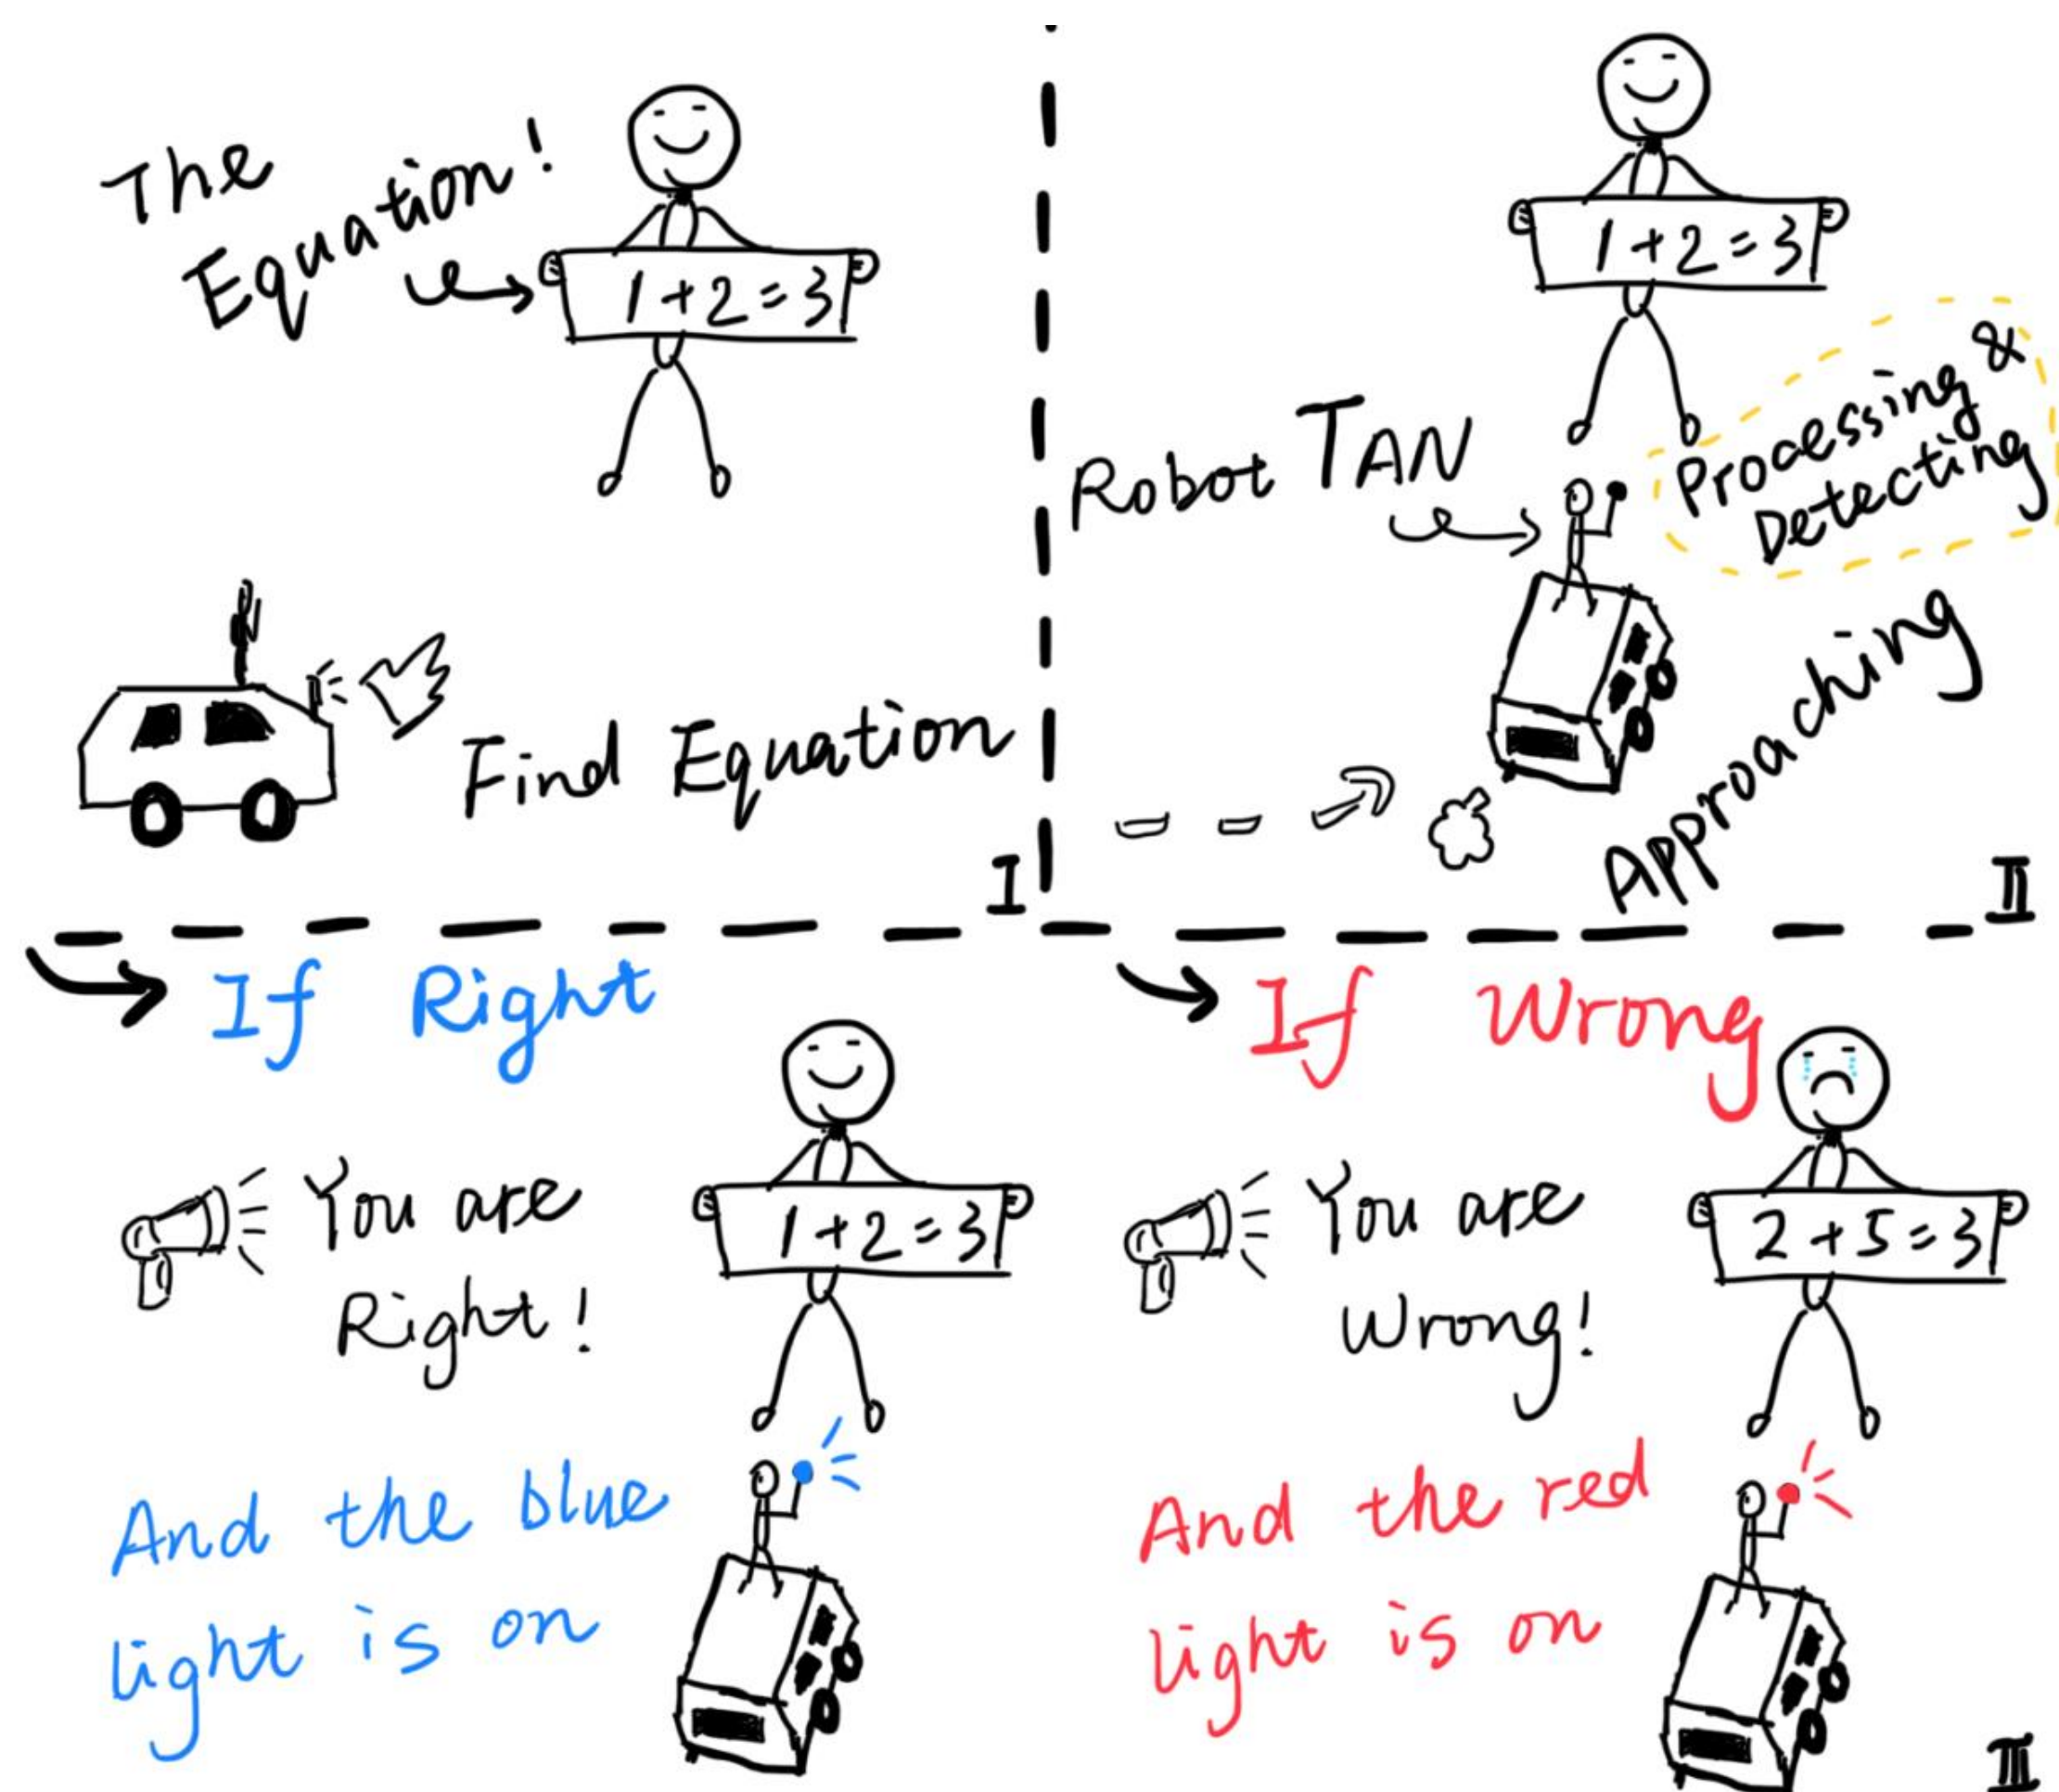 The
Equation!
1+2=3
Find Equation
I
1+2=3
Processing &
Detecting
Robot TAN
Approaching
II
If Right
You are
Right!
1+2=3
And the blue
light is on
If Wrong
You are
Wrong!
2+5=3
And the red
light is on
III